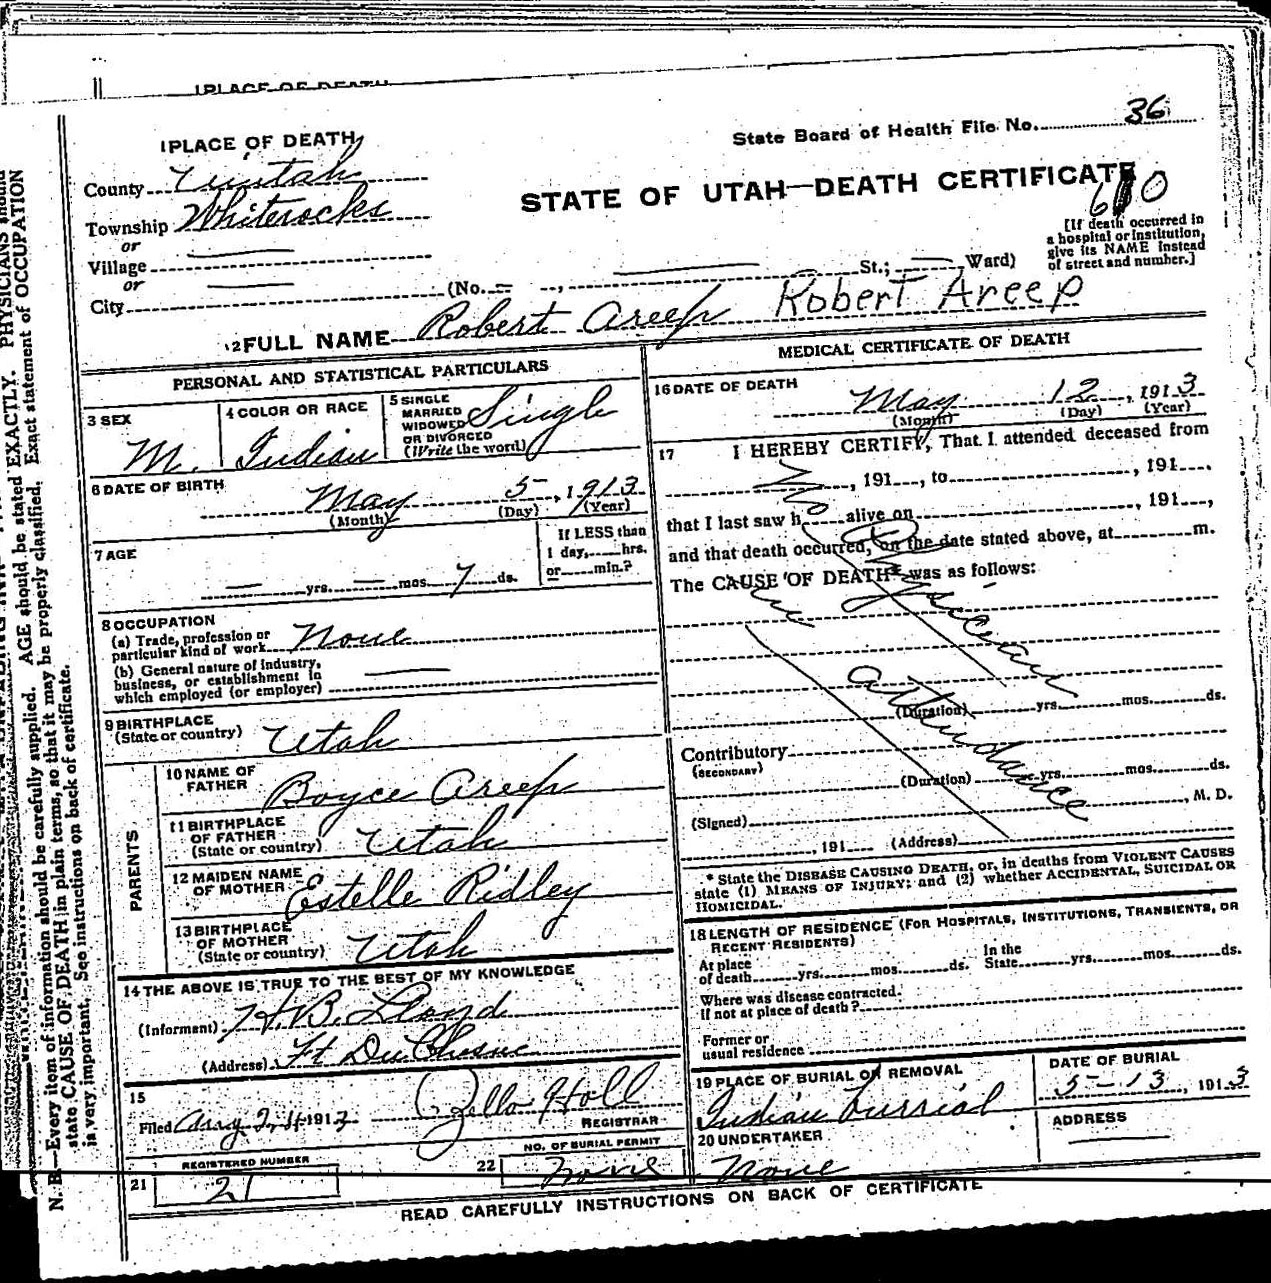 1 PLACE OF DEATH
State Board of Health File No. 36
1 PLACE OF DEATH
County Uintah
STATE OF UTAH—DEATH CERTIFICATE
Township Whiterocks
or
Village
or
City
(No. St.; Ward)
[If death occurred in
a hospital or institution,
give its NAME instead
of street and number.]
2 FULL NAME Robert Areep Robert Areep
PERSONAL AND STATISTICAL PARTICULARS
3 SEX
M.
4 COLOR OR RACE
Indian
5 SINGLE
MARRIED
WIDOWED
OR DIVORCED
(Write the word)
Single
6 DATE OF BIRTH
May 5, 1913
(Month) (Day) (Year)
7 AGE
— yrs. — mos. 7 ds.
If LESS than
1 day, hrs.
or min.?
8 OCCUPATION
(a) Trade, profession or
particular kind of work None
(b) General nature of industry,
business, or establishment in
which employed (or employer)
9 BIRTHPLACE
(State or country) Utah
PARENTS
10 NAME OF
FATHER Boyce Areep
11 BIRTHPLACE
OF FATHER
(State or country) Utah
12 MAIDEN NAME
OF MOTHER Estelle Ridley
13 BIRTHPLACE
OF MOTHER
(State or country) Utah
14 THE ABOVE IS TRUE TO THE BEST OF MY KNOWLEDGE
(Informant) H.B. Lloyd
(Address) Ft Du Chesne
15
Filed Aug 191
Zello Holl
REGISTRAR
REGISTERED NUMBER
21 21
NO. OF BURIAL PERMIT
22 None
MEDICAL CERTIFICATE OF DEATH
16 DATE OF DEATH
May 12, 1913
(Month) (Day) (Year)
17 I HEREBY CERTIFY, That I attended deceased from
, 191 , to , 191 .
that I last saw h alive on , 191 ,
and that death occurred, on the date stated above, at m.
The CAUSE OF DEATH* was as follows:
No Physician
in attendance
(Duration) yrs. mos. ds.
Contributory
(SECONDARY)
(Duration) yrs. mos. ds.
(Signed) , M. D.
, 191 (Address)
* State the DISEASE CAUSING DEATH, or, in deaths from VIOLENT CAUSES
state (1) MEANS OF INJURY; and (2) whether ACCIDENTAL, SUICIDAL OR
HOMICIDAL.
18 LENGTH OF RESIDENCE (FOR HOSPITALS, INSTITUTIONS, TRANSIENTS, OR
RECENT RESIDENTS)
At place
of death yrs. mos. ds.
In the
State yrs. mos. ds.
Where was disease contracted,
if not at place of death?
Former or
usual residence
19 PLACE OF BURIAL OR REMOVAL
Indian burrial
DATE OF BURIAL
5-13, 1913
20 UNDERTAKER
None
ADDRESS
READ CAREFULLY INSTRUCTIONS ON BACK OF CERTIFICATE
N. B.—Every item of information should be carefully supplied. AGE should be stated EXACTLY. PHYSICIANS should
state CAUSE OF DEATH in plain terms, so that it may be properly classified. Exact statement of OCCUPATION
is very important. See instructions on back of certificate.